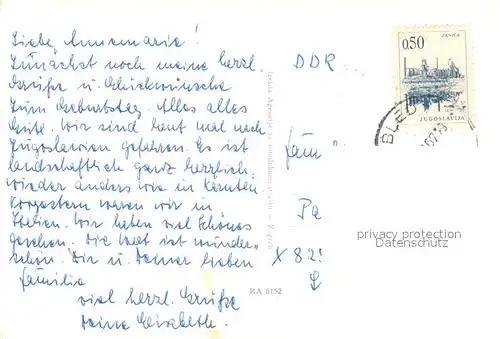 Liebe Annemarie!
Zunächst noch meine herzl.
Grüße u. Glückwünsche
zum Geburtstag. Alles alles
Gute. Wir sind heut mal nach
Jugoslawien gefahren. Es ist
landschaftlich ganz herrlich,
wieder anders wie in Kärnten.
Vorgestern waren wir in
Italien. Wir haben viel Schönes
gesehen. Die Welt ist wunder-
schön. Dir u. Deiner lieben
Familie
viel herzl. Grüße
Deine Elisabeth.
RA 6152
DDR
Fam
Pa
X 825
ZENICA
0,50
JUGOSLAVIJA
BLED
privacy protection
Datenschutz